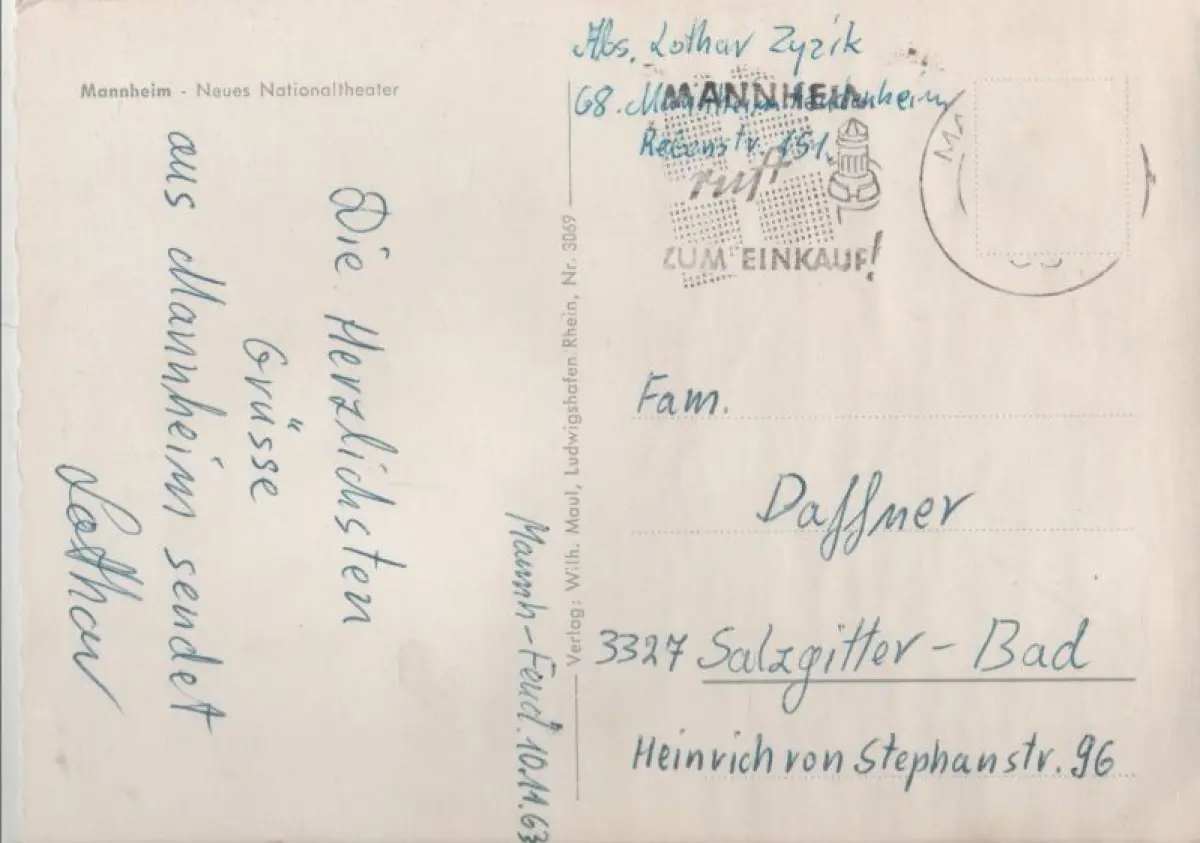 Mannheim - Neues Nationaltheater
Die Herzlichsten
Grüsse
aus Mannheim sendet
Lothar
Mannh-Feud. 10.11.63
Verlag: Wilh. Maul, Ludwigshafen/Rhein, Nr. 3069
Abs. Lothar Zyzik
68.
151.
MANNHEIM
ruft
ZUM EINKAUF!
Fam.
Daffner
3327 Salzgitter - Bad
Heinrich von Stephanstr. 96